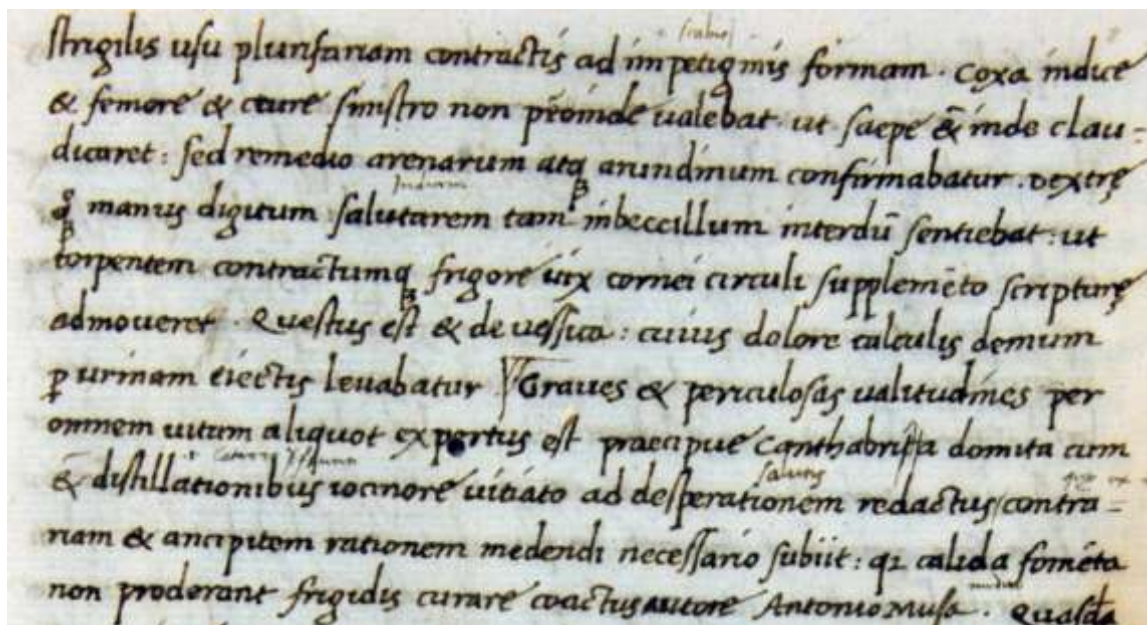 scabies
strigilis usu plurifariam contractis ad impetiginis formam . Coxa indice
& femore & crure sinistro non ꝓinde ualebat . ut saepe & inde clau-
dicaret : sed remedio arenarum atqꝫ arundinum confirmabatur . Dextrę
qꝫ manus digitum salutarem tam inbeccillum interdū sentiebat : ut
torpentem contractumqꝫ frigore uix cornei circuli supplemēto scripturę
admoueret . Questus est & de uessica : cuius dolore calculis demum
ꝑ urinam eiectis leuabatur Graues & periculosas ualitudines per
omnem uitam aliquot expertus est praecipue Canthabria domita cum
salutis
& distillationibus iocinore uitiato ad desperationem redactus / contra-
riam & ancipitem rationem medendi necessario subiit : qꝛ calida fomēta
non proderant frigidis curare coactus autore Antonio Musa . Quasdā